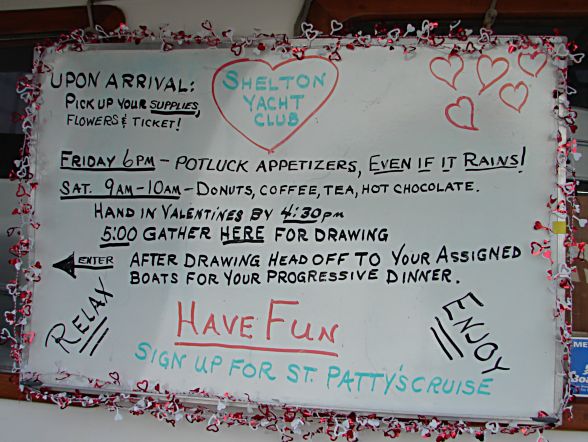 UPON ARRIVAL:
PICK UP YOUR SUPPLIES,
FLOWERS & TICKET!
SHELTON
YACHT
CLUB
FRIDAY 6PM - POTLUCK APPETIZERS, EVEN IF IT RAINS!
SAT. 9AM-10AM - DONUTS, COFFEE, TEA, HOT CHOCOLATE.
HAND IN VALENTINES BY 4:30pm
5:00 GATHER HERE FOR DRAWING
ENTER
AFTER DRAWING HEAD OFF TO YOUR ASSIGNED
BOATS FOR YOUR PROGRESSIVE DINNER.
RELAX
HAVE FUN
ENJOY
SIGN UP FOR ST. PATTY'S CRUISE